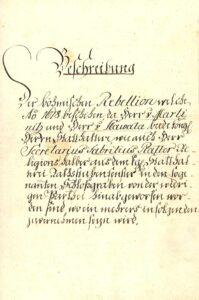 Beschreibung
Der böhmischen Rebellion welche
Ao 1618 beschehen da Herr v Marti
nitz und Herr v Slawata beede königl
Herrn Statthaltere wie auch Herr
Secretarius Fabritius Platter Re
ligions halber aus dem kgl Statthal
terei Rathstubenfenster in den soge
nanten Schlosgraben von der widri
gen Parthei hinabgeworfen wor
den sind, wo ein mehrers infolgenden
zuvernemen seyn wird,